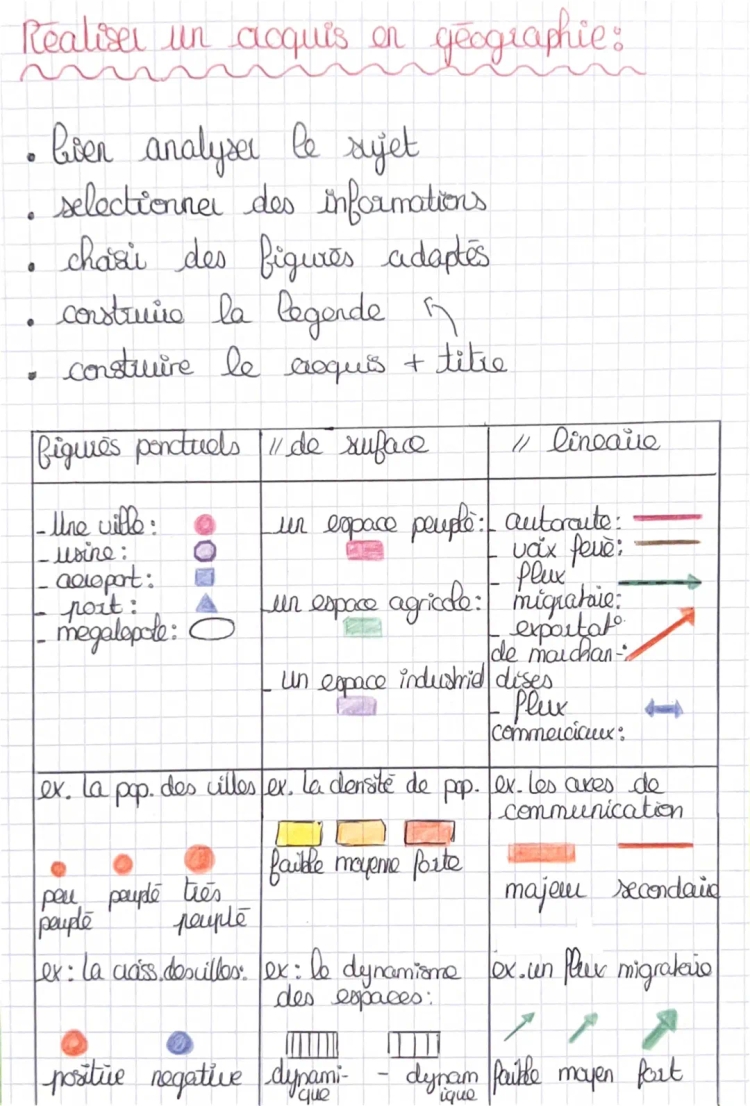 Réaliser un croquis en géographie:
• bien analyser le sujet
• selectionner des informations
• choisir des figurés adaptés
• construire la legende
• construire le croquis + titre
figurés ponctuels
- Une ville:
- usine:
- aeroport:
- port:
- megalopole:
// de surface
- un espace peuplé:
- un espace agricole:
- un espace industriel
// lineaire
- autoroute:
- voix feré:
- flux
migratoire:
- exportat°
de marchan-:
dises
- flux
commerciaux:
ex. la pop. des villes
peu
peuplé
peuplé
très
peuplé
ex. la densité de pop.
faible moyenne forte
ex. les axes de
communication
majeur secondaire
ex: la croiss. des villes:
positive negative
ex: le dynamisme
des espaces:
dynami-
que
- dynam
ique
ex. un flux migratoire
faible moyen fort